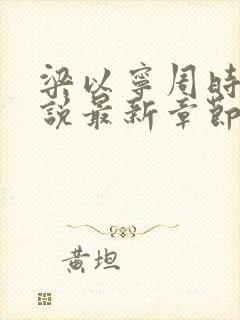 梁以寧周時
說最新章節
黃坦